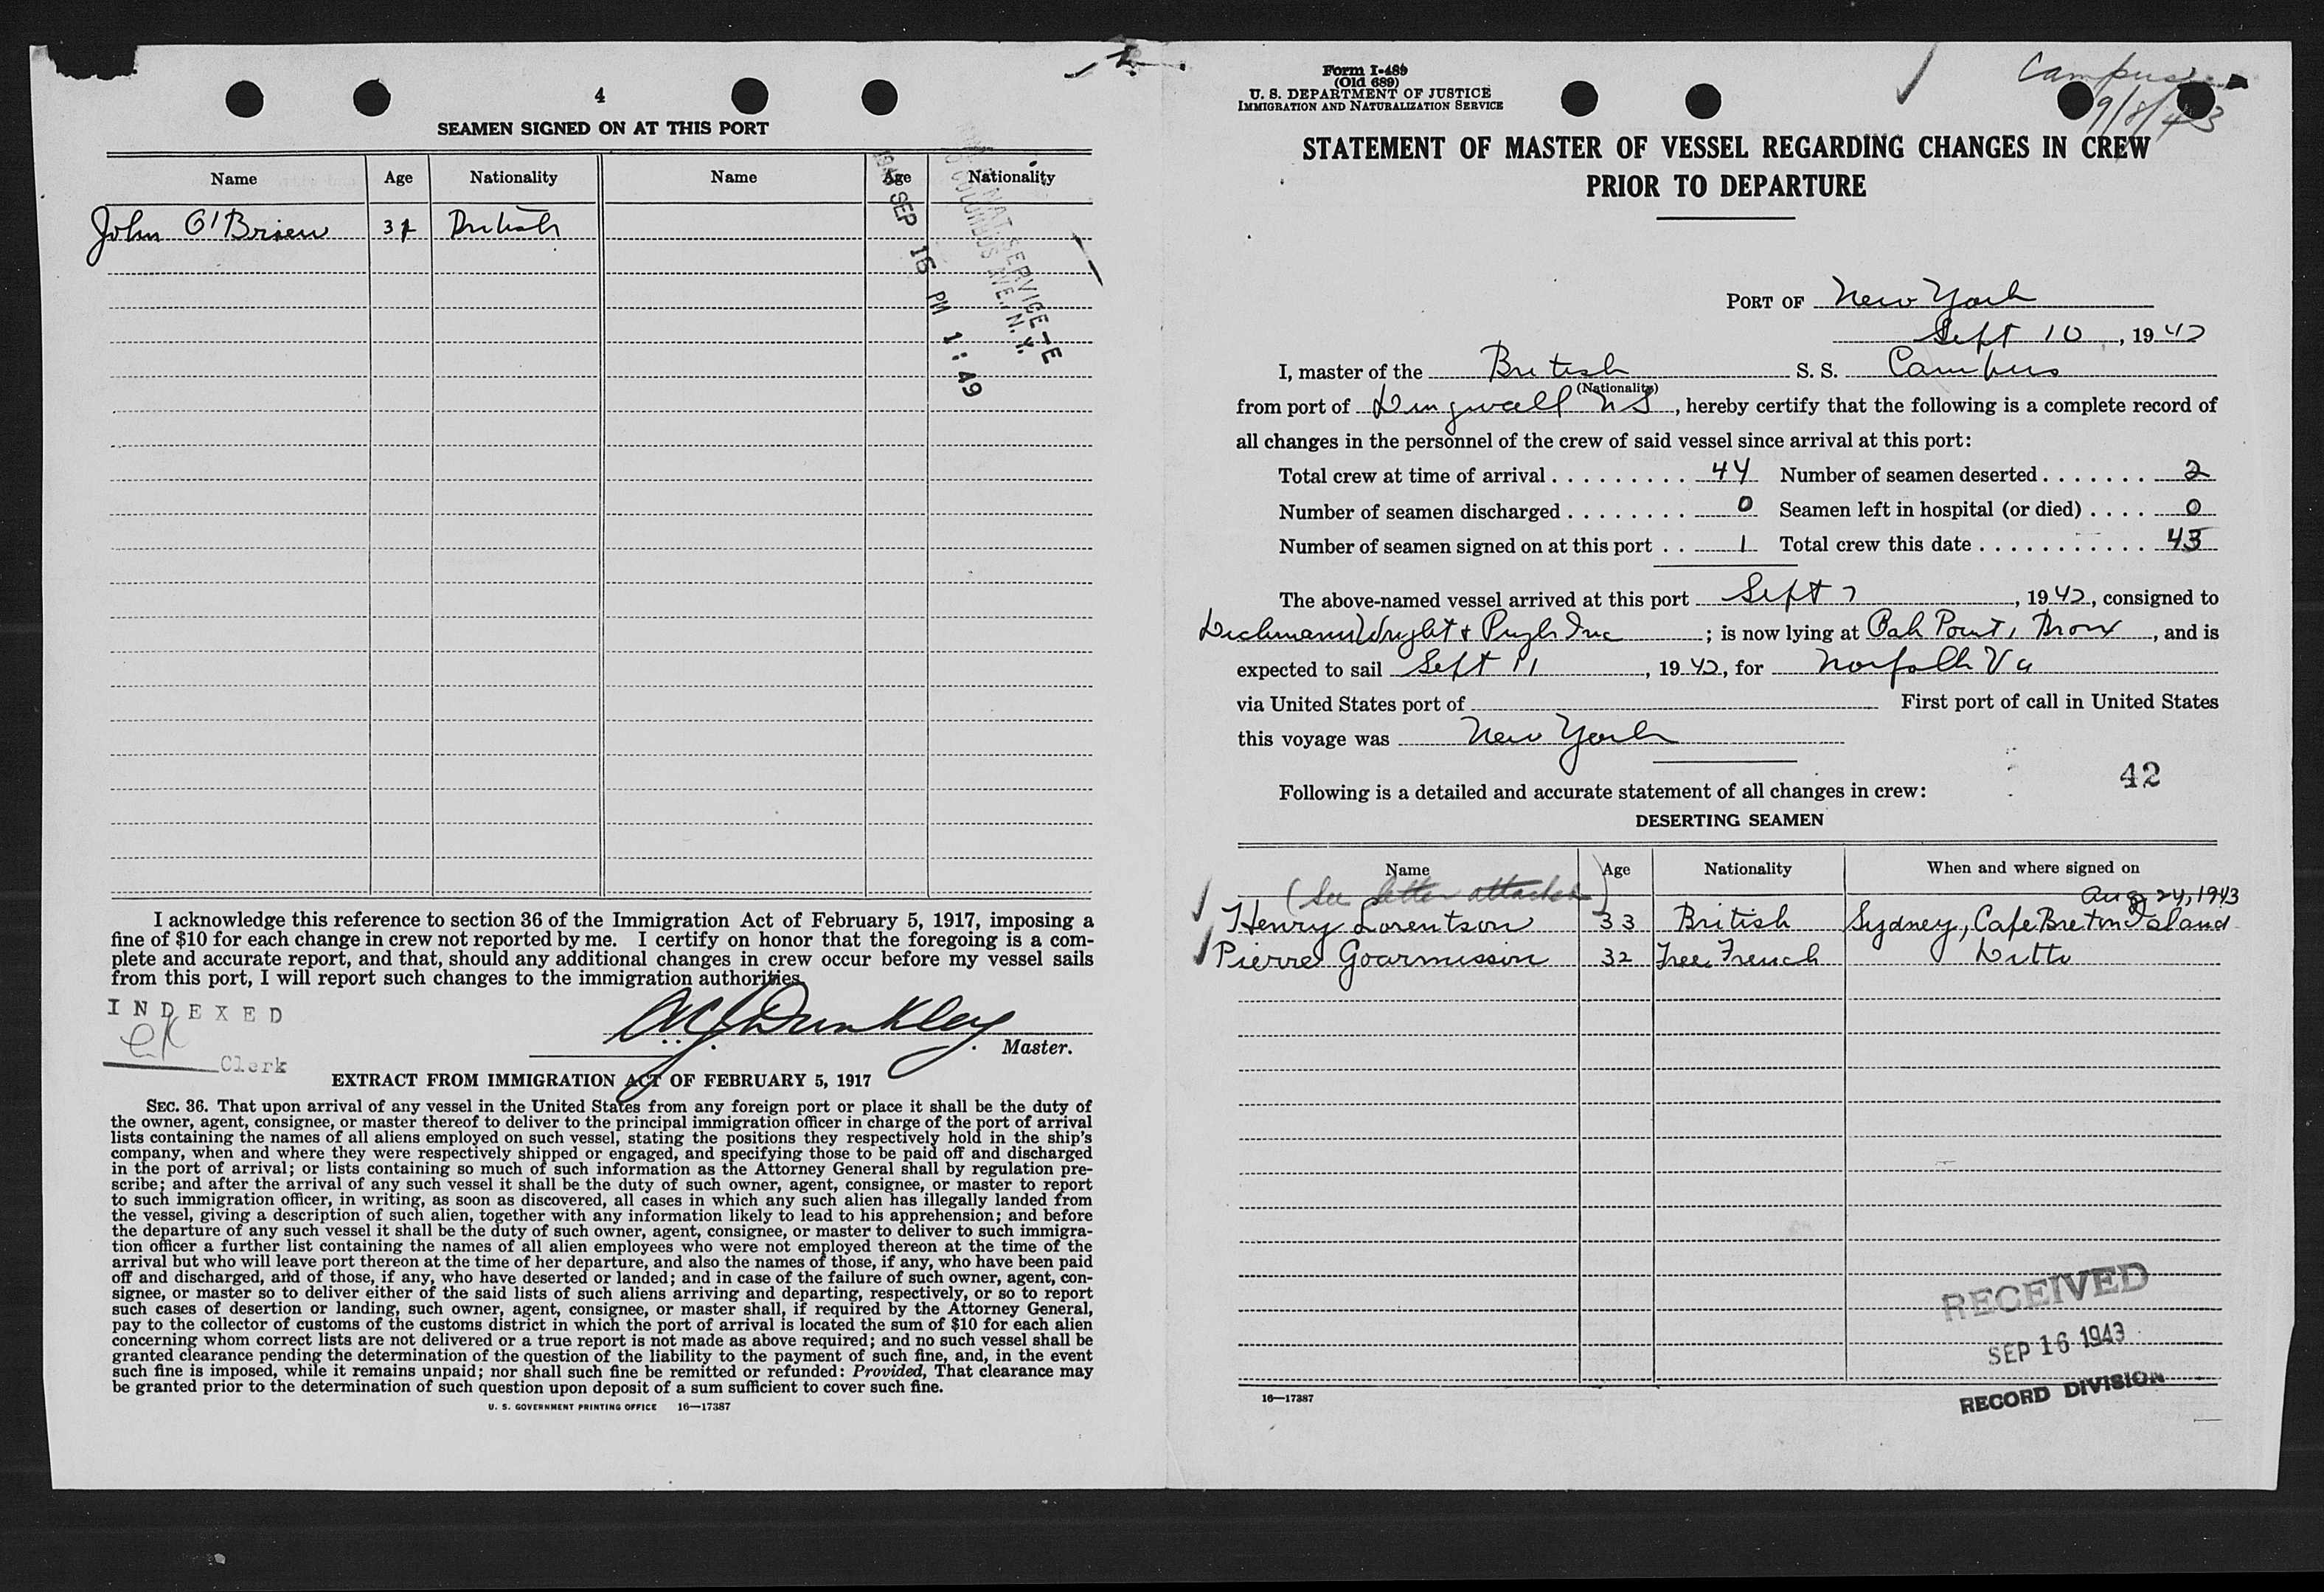 4
SEAMEN SIGNED ON AT THIS PORT
Name Age Nationality Name Age Nationality
John O'Brien British
SERVICE—E
COLUMBUS AVE., N. Y.
SEP 16 PM 1:49
I acknowledge this reference to section 36 of the Immigration Act of February 5, 1917, imposing a
fine of $10 for each change in crew not reported by me. I certify on honor that the foregoing is a com-
plete and accurate report, and that, should any additional changes in crew occur before my vessel sails
from this port, I will report such changes to the immigration authorities.
INDEXED
Dunkley
Master.
Clerk
EXTRACT FROM IMMIGRATION ACT OF FEBRUARY 5, 1917
SEC. 36. That upon arrival of any vessel in the United States from any foreign port or place it shall be the duty of
the owner, agent, consignee, or master thereof to deliver to the principal immigration officer in charge of the port of arrival
lists containing the names of all aliens employed on such vessel, stating the positions they respectively hold in the ship's
company, when and where they were respectively shipped or engaged, and specifying those to be paid off and discharged
in the port of arrival; or lists containing so much of such information as the Attorney General shall by regulation pre-
scribe; and after the arrival of any such vessel it shall be the duty of such owner, agent, consignee, or master to report
to such immigration officer, in writing, as soon as discovered, all cases in which any such alien has illegally landed from
the vessel, giving a description of such alien, together with any information likely to lead to his apprehension; and before
the departure of any such vessel it shall be the duty of such owner, agent, consignee, or master to deliver to such immigra-
tion officer a further list containing the names of all alien employees who were not employed thereon at the time of the
arrival but who will leave port thereon at the time of her departure, and also the names of those, if any, who have been paid
off and discharged, and of those, if any, who have deserted or landed; and in case of the failure of such owner, agent, con-
signee, or master so to deliver either of the said lists of such aliens arriving and departing, respectively, or so to report
such cases of desertion or landing, such owner, agent, consignee, or master shall, if required by the Attorney General,
pay to the collector of customs of the customs district in which the port of arrival is located the sum of $10 for each alien
concerning whom correct lists are not delivered or a true report is not made as above required; and no such vessel shall be
granted clearance pending the determination of the question of the liability to the payment of such fine, and, in the event
such fine is imposed, while it remains unpaid; nor shall such fine be remitted or refunded: Provided, That clearance may
be granted prior to the determination of such question upon deposit of a sum sufficient to cover such fine.
U. S. GOVERNMENT PRINTING OFFICE 16—17387
Form I-489
(Old 689)
U. S. DEPARTMENT OF JUSTICE
IMMIGRATION AND NATURALIZATION SERVICE
Campus
9/8/43
STATEMENT OF MASTER OF VESSEL REGARDING CHANGES IN CREW
PRIOR TO DEPARTURE
PORT OF New York
Sept 10, 19
I, master of the British S. S. Campus
(Nationality)
from port of Dingwall NS, hereby certify that the following is a complete record of
all changes in the personnel of the crew of said vessel since arrival at this port:
Total crew at time of arrival . . . . . . . . . 44 Number of seamen deserted . . . . . . . 2
Number of seamen discharged . . . . . . . . 0 Seamen left in hospital (or died) . . . . 0
Number of seamen signed on at this port . . 1 Total crew this date . . . . . . . . . . . 43
The above-named vessel arrived at this port Sept 7, 19, consigned to
Wright & Pugh Inc; is now lying at Oak Point, Bronx, and is
expected to sail Sept 11, 19, for Norfolk Va
via United States port of First port of call in United States
this voyage was New York
42
Following is a detailed and accurate statement of all changes in crew:
DESERTING SEAMEN
Name Age Nationality When and where signed on
(See letter attached) Aug 24, 1943
Henry Lorentson 33 British Sydney, Cape Breton Island
Pierre Goarmisson 32 Free French Ditto
RECEIVED
SEP 16 1943
RECORD DIVISION
16—17387